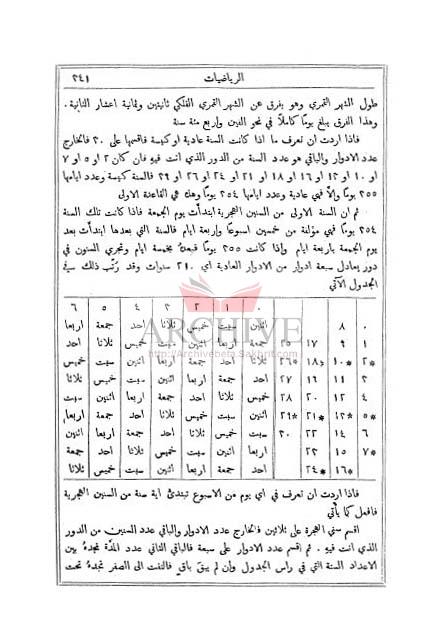 الرياضيات ٢٤١
طول الشهر القمري وهو يفرق عن الشهر القمري الفلكي ثانيتين وثمانية اعشار الثانية.
وهذا الفرق يبلغ يومًا كاملًا في نحو الفين واربع مئة سنة
فاذا اردت ان تعرف ما اذا كانت السنة عادية او كبيسة فاقسمها على ٣٠ فالخارج
عدد الادوار والباقي هو عدد السنة من الدور الذي انت فيهِ فان كان ٢ او ٥ او ٧
او ١٠ او ١٣ او ١٦ او ١٨ او ٢١ او ٢٤ او ٢٦ او ٢٩ فالسنة كبيسة وعدد ايامها
٣٥٥ يومًا والّا فهي عادية وعدد ايامها ٣٥٤ يومًا وهذه هي القاعدة الاولى
ثم ان السنة الاولى من السنين الهجرية ابتدأت يوم الجمعة فاذا كانت تلك السنة ٣٥٤
فهي مؤلفة من خمسين اسبوعًا واربعة ايام فالسنة التي بعدها ابتدأت بعد
يوم الجمعة باربعة ايام واذا كانت ٣٥٥ يومًا فبعدهُ بخمسة ايام وتجري السنون في
دور يعادل سبعة ادوار من الادوار العادية اي ٢١٠ سنوات وقد رُتّب ذلك في
الجدول الآتي
٠ ١ ٢ ٣ ٤ ٥ ٦
٠ ٨ اثنين سبت خميس ثلاثا احد جمعة اربعا
١ ٩ ١٧ ٢٥ جمعة اربعا اثنين سبت خميس ثلاثا احد
*٢ *١٠ *١٨ *٢٦ ثلاثا احد جمعة اربعا اثنين سبت خميس
٣ ١١ ١٩ ٢٧ احد جمعة اربعا اثنين سبت خميس ثلاثا
٤ ١٢ ٢٠ ٢٨ خميس ثلاثا احد جمعة اربعا اثنين سبت
*٥ *١٣ *٢١ *٢٩ اثنين سبت خميس ثلاثا احد جمعة اربعا
٦ ١٤ ٢٢ ٣٠ سبت خميس ثلاثا احد جمعة اربعا اثنين
*٧ ١٥ ٢٣ اربعا اثنين سبت خميس ثلاثا احد جمعة
*١٦ *٢٤ احد جمعة اربعا اثنين سبت خميس ثلاثا
ARCHIVE
http://Archivebeta.Sakhrit.com
فاذا اردت ان تعرف في اي يوم من الاسبوع تبتدئ اية سنة من السنين الهجرية
فافعل كما يأتي
اقسم سني الهجرة على ثلاثين فالخارج عدد الادوار والباقي عدد السنين من الدور
الذي انت فيهِ. ثم اقسم عدد الادوار على سبعة فالباقي الثاني عدد المدّة تجدهُ بين
الاعداد السنة التي في راس الجدول وان لم يبقَ باقٍ فالتفت الى الصفر تجدهُ تحت